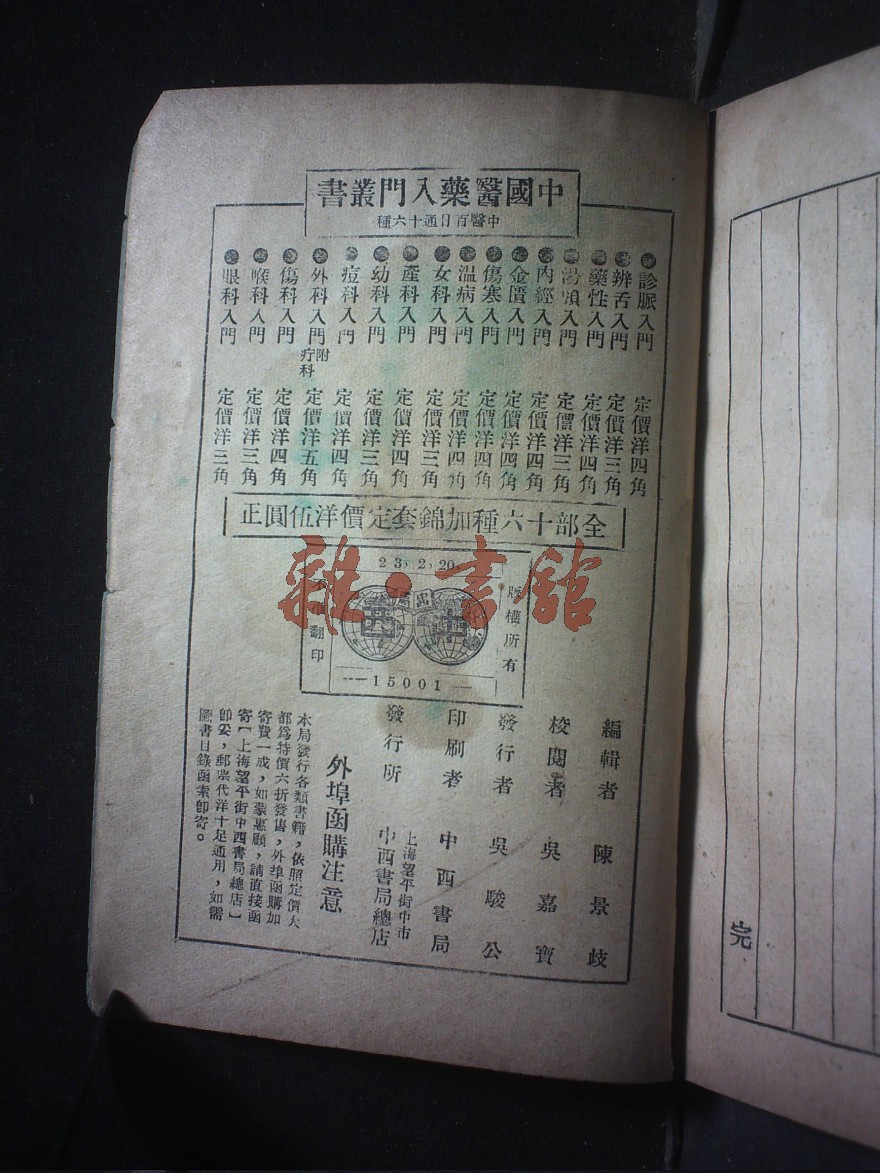 中國醫藥入門叢書
中醫百日通十六種
診脈入門 定價洋四角
辨舌入門 定價洋三角
藥性入門 定價洋四角
湯頭入門 定價洋三角
內經入門 定價洋四角
金匱入門 定價洋四角
傷寒入門 定價洋四角
溫病入門 定價洋四角
女科入門 定價洋三角
產科入門 定價洋四角
幼科入門 定價洋三角
痘科入門 定價洋四角
外科入門附疔科 定價洋五角
傷科入門 定價洋四角
喉科入門 定價洋三角
眼科入門 定價洋三角
全部十六種加錦套定價洋伍圓正
版權所有
23,2,20
15001
翻印
雜·書館
編輯者 陳景岐
校閱者 吳嘉寶
發行者 吳駿公
印刷者 中西書局
發行所 上海望平街中市
中西書局總店
外埠函購注意
本局發行各類書籍，依照定價大
都爲特價六折發售，外埠函購加
寄費一成，如蒙惠顧，請直接函
寄［上海望平街中西書局總店］
卽妥，郵票代洋十足通用，如需
圖書目錄函索卽寄。
完